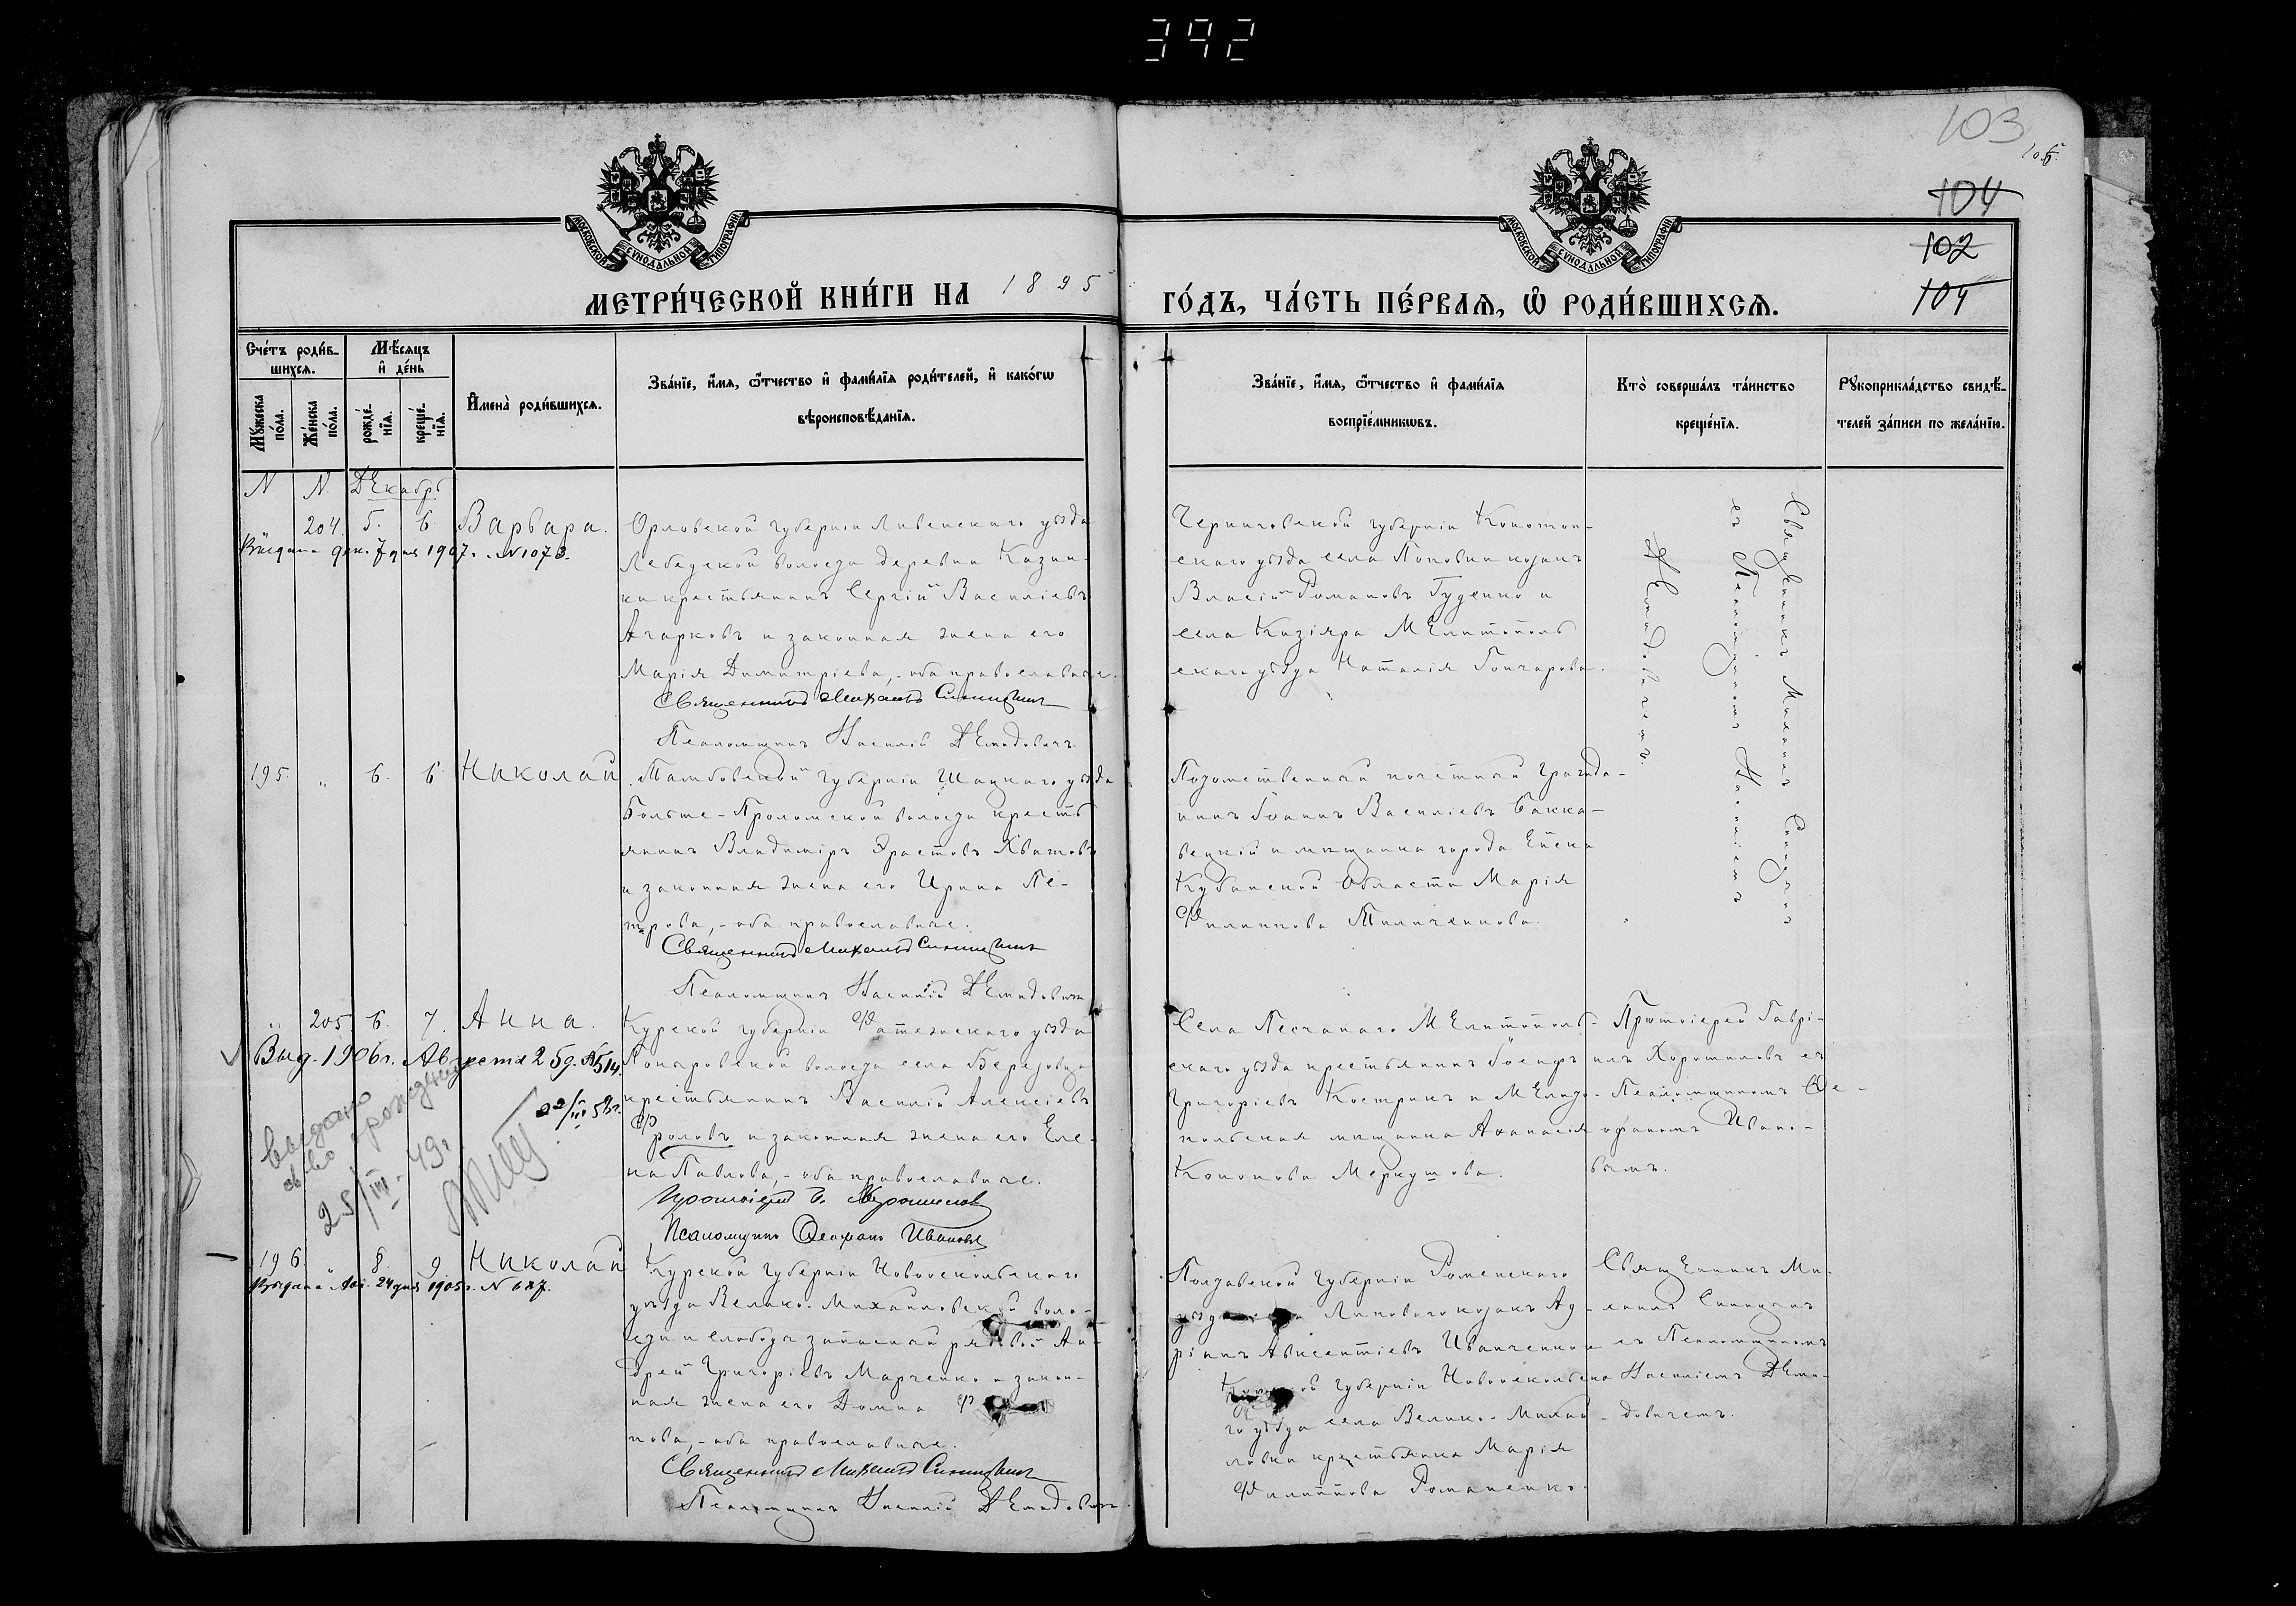 392
103
105
104
102
104
МОСКОВСКОЙ СУНОДАЛЬНОЙ ТИПОГРАФІИ
МОСКОВСКОЙ СУНОДАЛЬНОЙ ТИПОГРАФІИ
МЕТРИ́ЧЕСКОЙ КНИ́ГИ НА 1895
ГО́ДЪ, ЧА́СТЬ ПЕ́РВАѦ, Ѡ҆ РОДИ́ВШИХСѦ.
Сче́тъ роди́в-
шихсѧ.
Мѣ́сѧцъ
и҆ де́нь
Мꙋ́жеска
по́ла.
Же́нска
по́ла.
рожде́-
нїѧ.
креще́-
нїѧ.
И҆мена̀ роди́вшихсѧ.
Зва́нїе, и҆́мѧ, ѻ҆́тчество и҆ фамі́лїѧ роди́телей, и҆ како́гѡ
вѣроисповѣ́данїѧ.
Зва́нїе, и҆́мѧ, ѻ҆́тчество и҆ фамі́лїѧ
воспрїе́мникѡвъ.
Кто̀ соверша́лъ та́инство
креще́нїѧ.
Рꙋкоприкла́дство свидѣ́-
телей за́писи по жела́нїю.
N N. Декабрь
204. 5. 6. Варвара.
Выдана дек. 7 дня 1907 г. N 1073.
Орловской губерніи Ливенскаго уѣзда
Лебедской волости деревни Казин-
ки крестьянинъ Сергій Василіевъ
Агарковъ и законная жена его
Марія Димитріева, - оба православные.
Священникъ Михаилъ Синицынъ
Псаломщикъ Василій Демидовичъ.
Черниговской губерніи Конотоп-
скаго уѣзда села Поповки козакъ
Власій Романовъ Гуденко и
села Кизіяра Мелитополь
скаго уѣзда Наталія Гончарова.
Священникъ Михаилъ Синицынъ
съ Псаломщикомъ Василіемъ
Демидовичемъ.
195. „ 6. 6. Николай
Тамбовской губерніи Шацкаго уѣзда
Больше-Проломской волости кресть
янинъ Владиміръ Эрастовъ Хватовъ
и законная жена его Ирина Пе-
трова, - оба православные.
Священникъ Михаилъ Синицынъ
Псаломщикъ Василій Демидовичъ
Потомственный почетный гражда-
нинъ Іоаннъ Василіевъ Сакка-
вецкій и мѣщанка города Ейска
Кубанской области Марія
Филиппова Миличенкова.
„ 205. 6. 7. Анна.
Выд. 1906 г. Августа 25 д. N 514.
выдано
св-во о рождении
25/III-49 г.
Курской губерніи Фатежскаго уѣзда
Поныровской волости села Березовца
крестьянинъ Василій Алексіевъ
Фроловъ и законная жена его Еле-
на Павлова, - оба православные.
Протоіерей Г. Хорошиловъ
Псаломщикъ Ѳеофанъ Ивановъ
Села Песчанаго Мелитополь-
скаго уѣзда крестьянинъ Іосифъ
Григоріевъ Кострикъ и Мелито-
польская мѣщанка Аѳанасія
Кононова Меркушова.
Протоіерей Гаврі-
илъ Хорошиловъ съ
Псаломщикомъ Ѳе-
офаномъ Ивано-
вымъ.
196. „ 8. 9. Николай
Выдана Авг. 24 дня 1905 г. N 627.
Курской губерніи Новооскольскаго
уѣзда Велико-Михайловской воло-
сти и слободы запасный рядовой Ан-
дрей Григоріевъ Марченко и закон-
ная жена его Домна
нова, - оба православные.
Священникъ Михаилъ Синицынъ
Псаломщикъ Василій Демидовичъ.
Полтавской губерніи Роменскаго
уѣзда Липоваго козакъ Ад-
ріанъ Авксентіевъ Иванченко и
Курской губерніи Новооскольска
го уѣзда села Велико-Михай-
ловки крестьянка Марія
Филиппова Романенко.
Священникъ Ми-
хаилъ Синицынъ
съ Псаломщикомъ
Василіемъ Деми-
довичемъ.